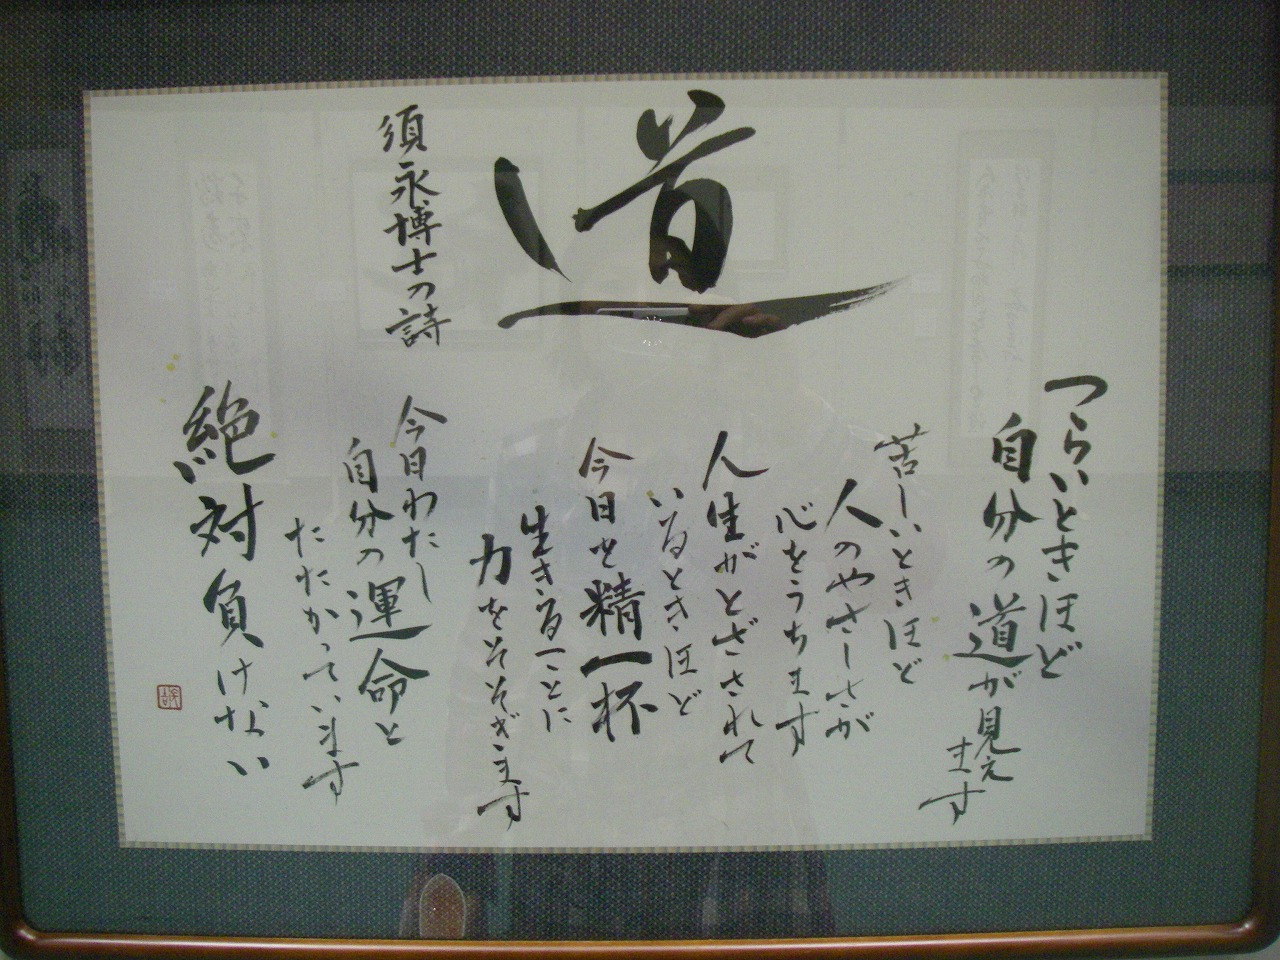 道
つらいときほど
自分の道が見え
ます
苦しいときほど
人のやさしさが
心をうちます
人生がとざされて
いるときほど
今日を精一杯
生きることに
力をそそぎます
今日わたし
自分の運命と
たたかっています
絶対負けない
須永博士の詩